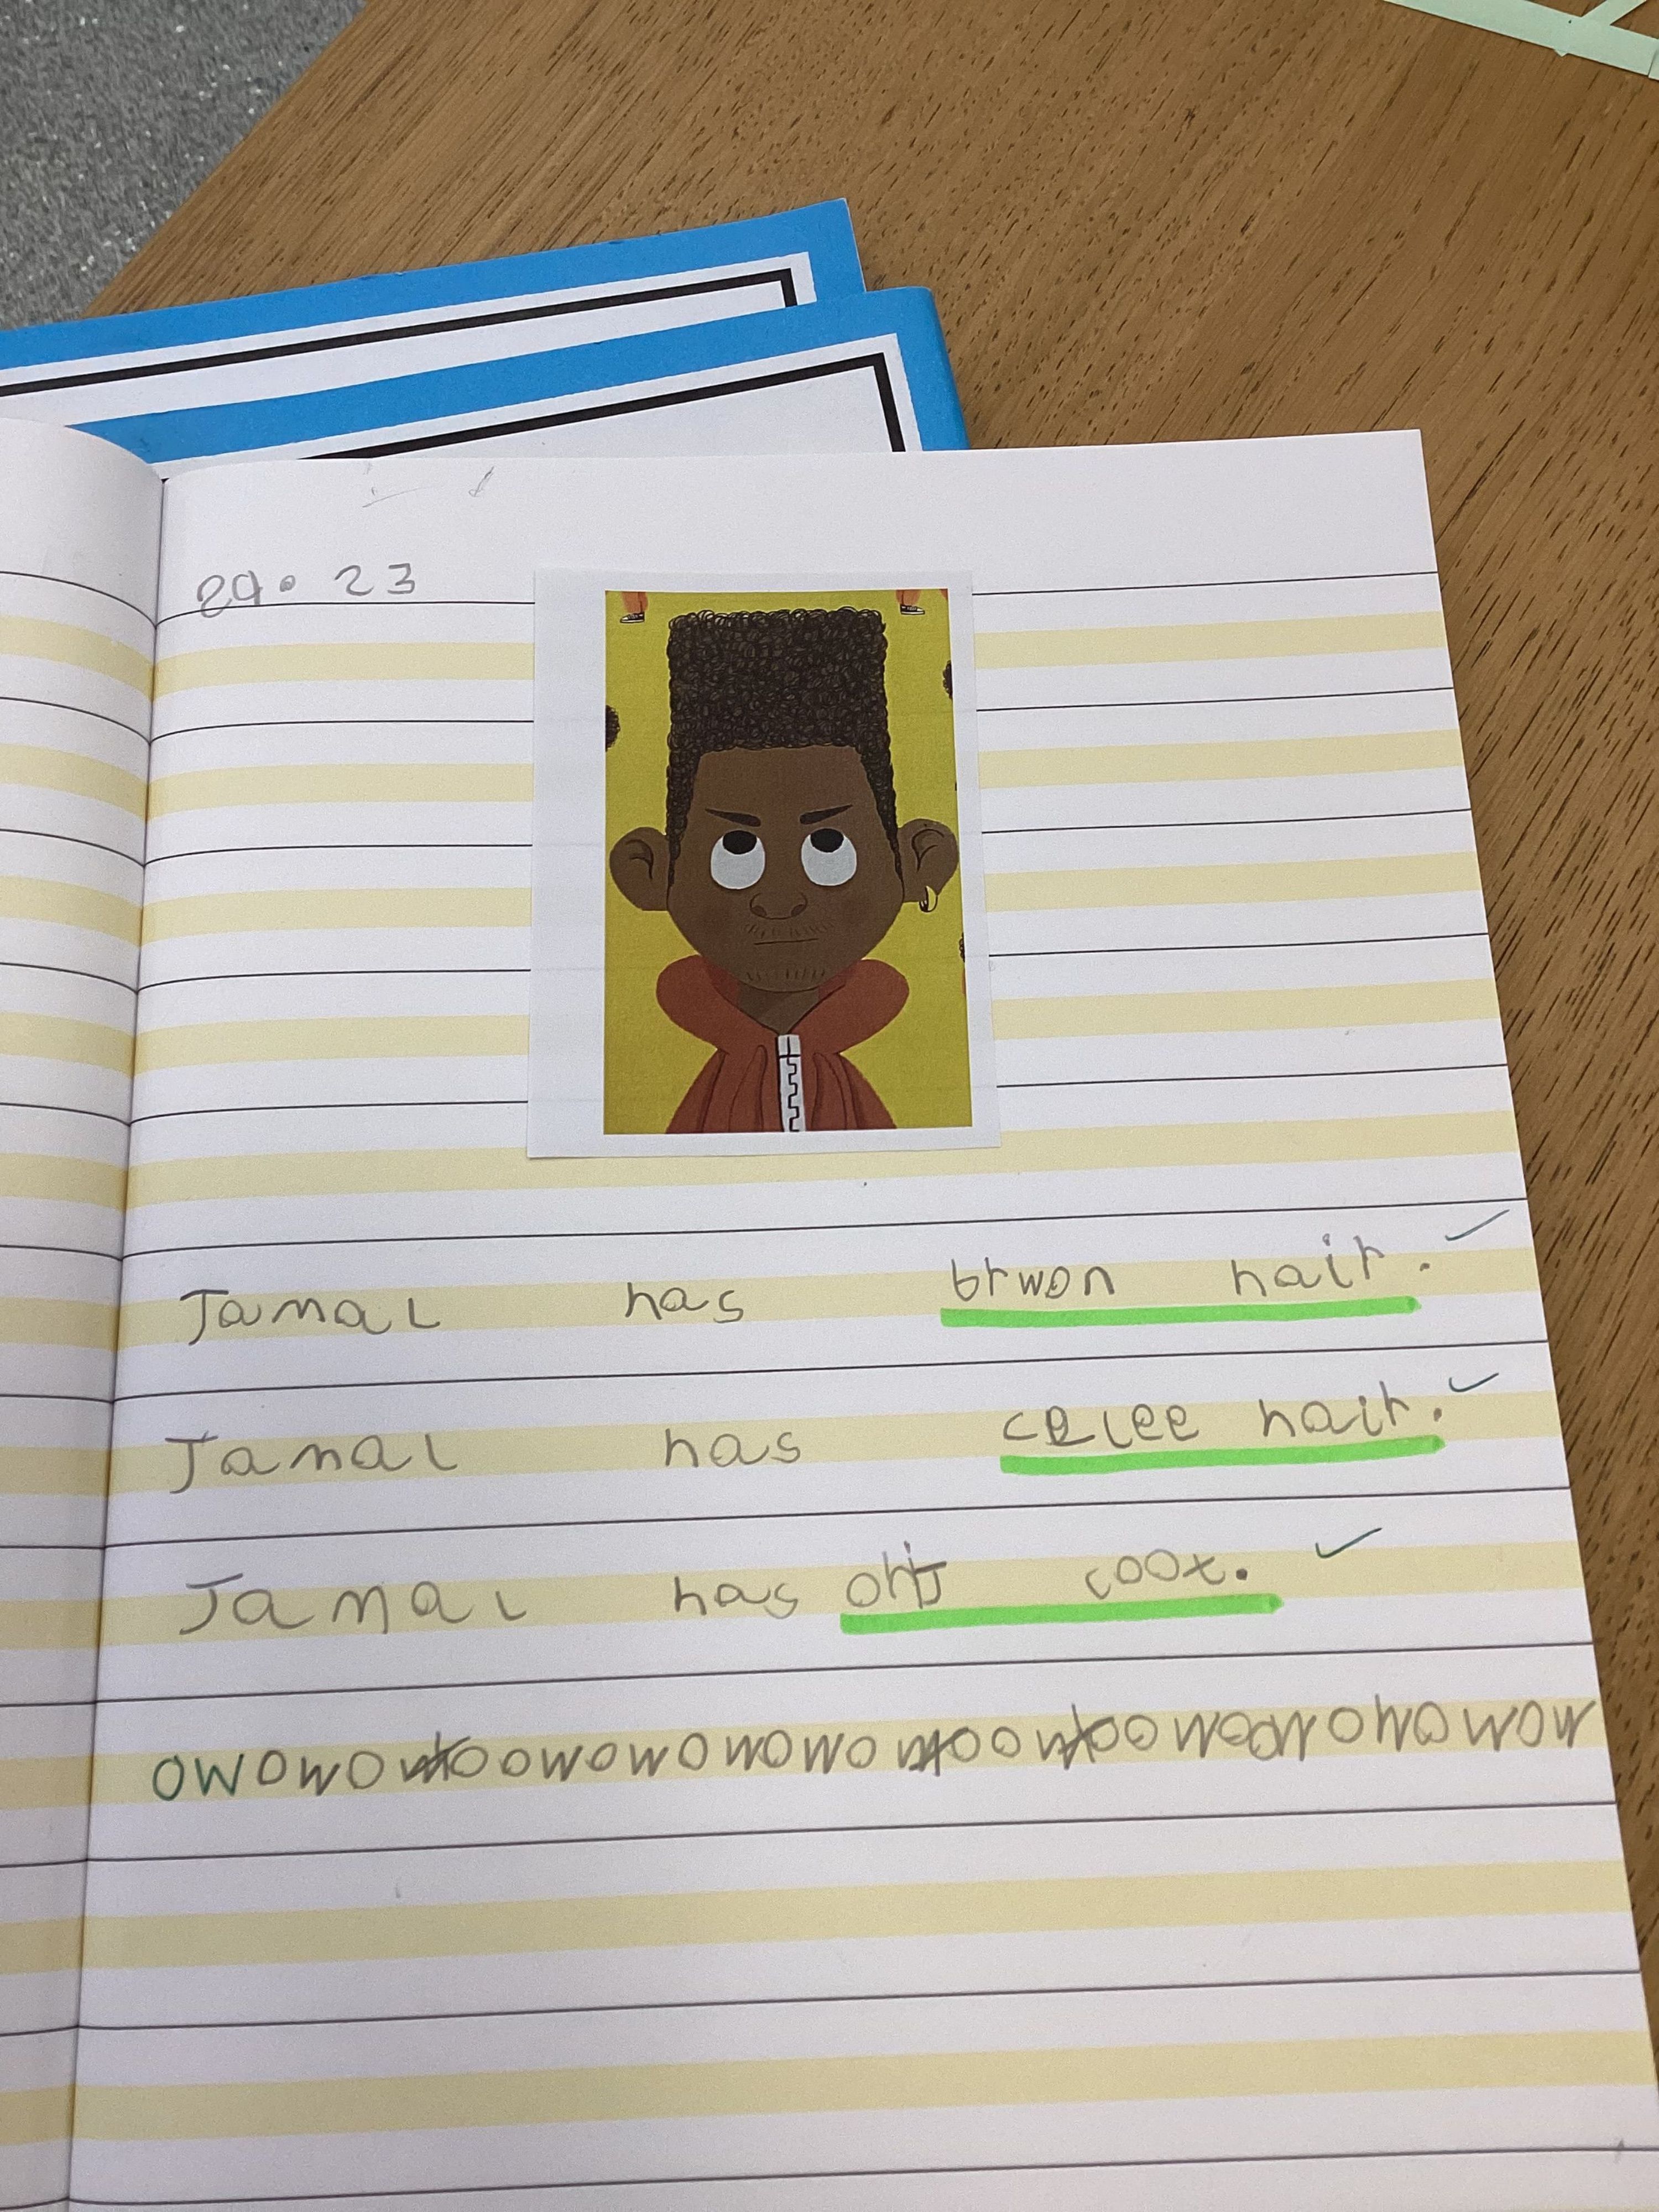 29. 23
Jamal has brwon hair.
Jamal has celee hair.
Jamal has coox.
owowo